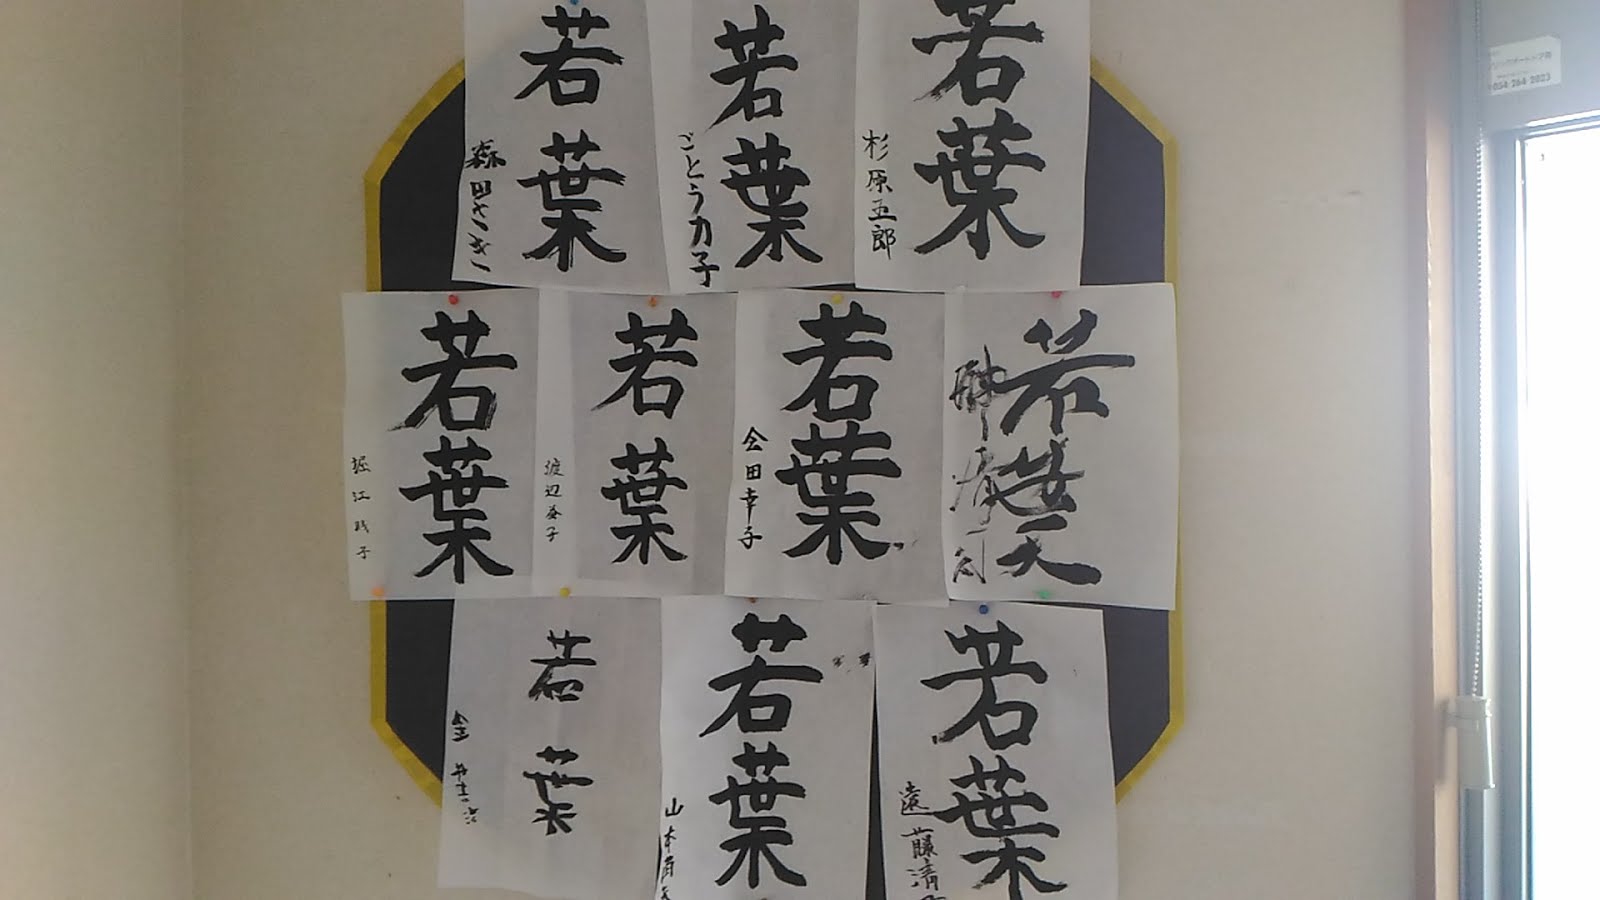 若葉
森田さき
若葉
ごとう力子
若葉
杉原五郎
若葉
堀江
子
若葉
渡辺
子
若葉
会田幸子
若葉
若葉
若葉
山本
若葉
遠藤清
054-264-2023